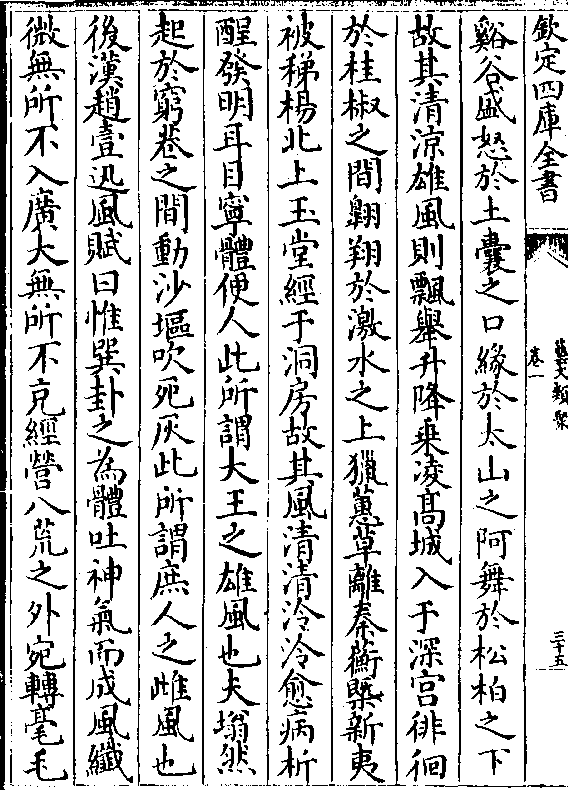 欽定四庫全書
藝文類聚
卷一
三十五
谿谷盛怒於土囊之口緣於太山之阿舞於松柏之下
故其清涼雄風則飄舉升降乗凌髙城入于深宫徘徊
於桂椒之間翺翔於激水之上獵蕙草離秦蘅槩新夷
被稊楊北上玉堂經于洞房故其風清清泠泠愈病析
酲發明耳目寧體便人此所謂大王之雄風也夫塕然
起於窮巷之間動沙堀吹死灰此所謂庶人之雌風也
後漢趙壹迅風賦曰惟巽卦之為體吐神氣而成風纎
微無所不入廣大無所不充經營八荒之外宛轉毫毛